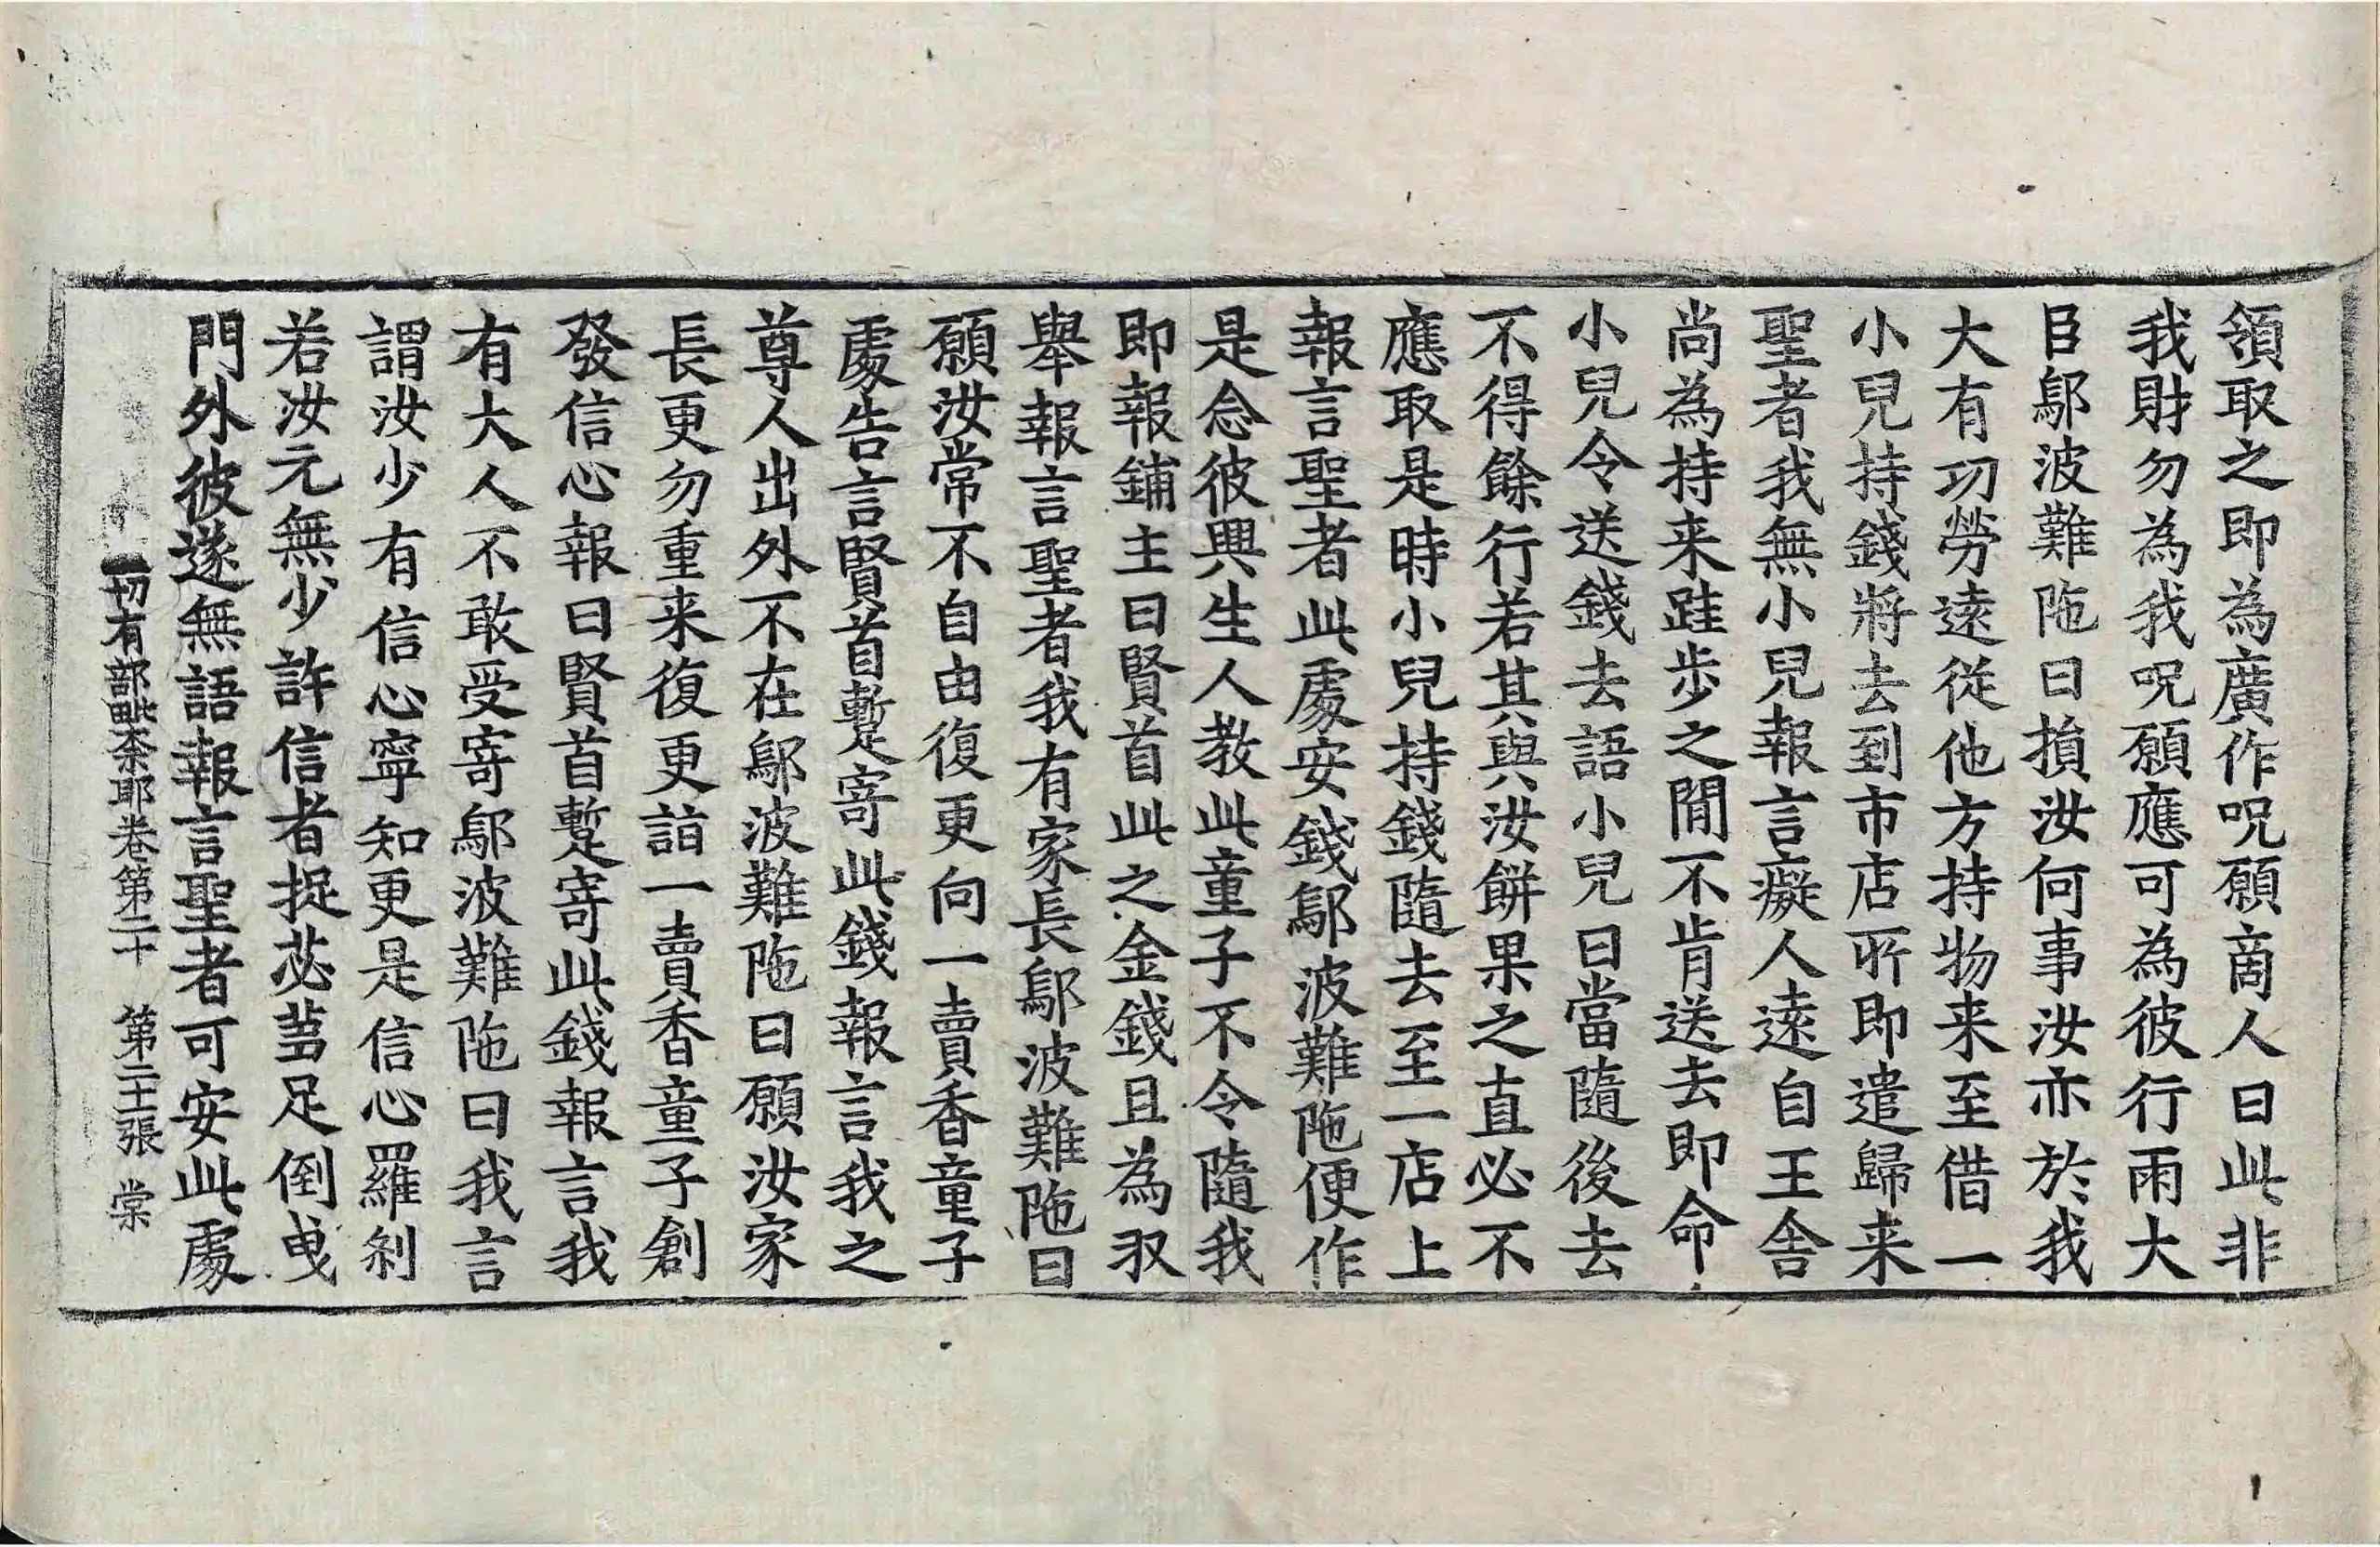 領取之即為廣作呪願商人曰此非
我財勿為我呪願應可為彼行雨大
臣鄔波難陁曰損汝何事汝亦於我
大有功勞遠從他方持物来至借一
小兒持錢將去到市店所即遣歸来
聖者我無小兒報言癡人遠自王舍
尚為持来跬步之間不肯送去即命
小兒令送錢去語小兒曰當隨後去
不得餘行若其與汝餅果之直必不
應取是時小兒持錢隨去至一店上
報言聖者此處安錢鄔波難陁便作
是念彼興生人教此童子不令隨我
即報鋪主曰賢首此之金錢且為収
舉報言聖者我有家長鄔波難陁曰
願汝常不自由復更向一賣香童子
處告言賢首蹔寄此錢報言我之
尊人出外不在鄔波難陁曰願汝家
長更勿重来復更詣一賣香童子創
發信心報曰賢首蹔寄此錢報言我
有大人不敢受寄鄔波難陁曰我言
謂汝少有信心寧知更是信心羅剎
若汝元無少許信者捉苾芻足倒曵
門外彼遂無語報言聖者可安此處
一切有部毗奈耶卷第二十 第二十張 棠